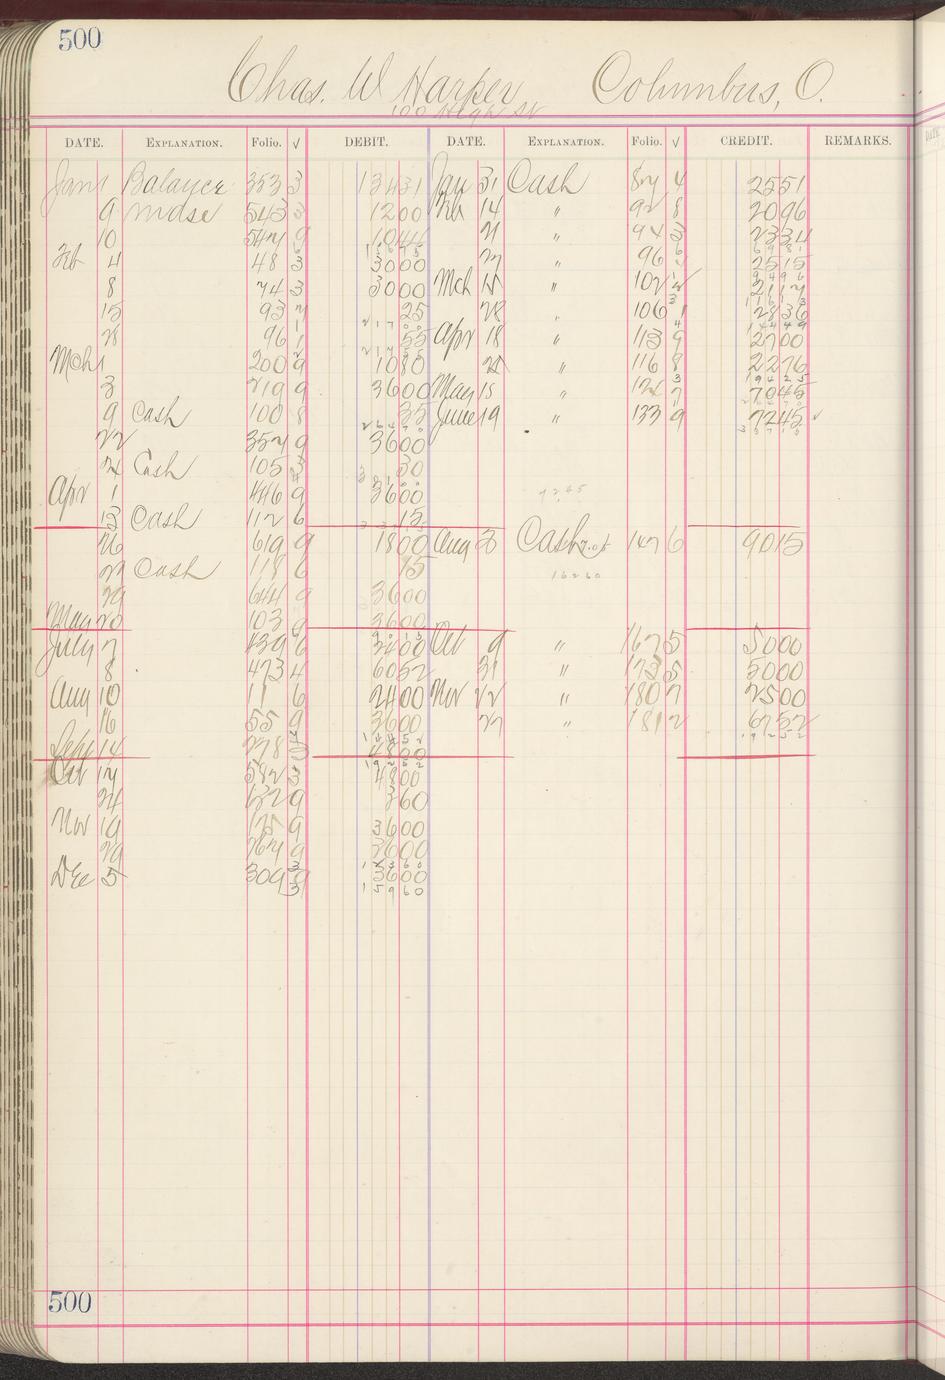 500
Chas. W Harper Columbus, O.
100 High St
DATE. EXPLANATION. Folio. √ DEBIT. DATE. EXPLANATION. Folio. √ CREDIT. REMARKS.
Jan 1 Balance 353 3 134 31 Jan 31 Cash 87 4 25 51
9 Mdse 543 3 12 00 Feb 14 " 92 8 20 96
10 547 9 10 44 21 " 94 3 23 34
Feb 4 48 3 30 00 27 " 96 25 15
8 74 3 30 00 Mch 15 " 102 21 17
15 93 7 25 28 " 106 1 28 36
28 96 1 55 Apr 18 " 113 9 27 00
Mch 1 200 9 10 80 25 " 116 8 22 76
3 219 9 36 00 May 15 " 124 7 70 45
9 Cash 100 8 35 June 19 " 133 9 72 45 √
22 357 9 36 00
24 Cash 105 3 30
Apr 1 446 9 36 00
13 Cash 112 6 15
26 619 9 18 00 Aug 3 Cash 147 6 90 15
29 Cash 118 6 15
16260
29 644 9 36 00
May 20 103 9 36 00
July 7 439 6 34 00 Oct 9 " 167 5 50 00
8 473 4 60 52 31 " 173 5 50 00
Aug 10 11 6 24 00 Nov 22 " 180 7 25 00
16 55 9 36 00 27 " 181 2 67 52
Sept 14 278 48 00
Oct 17 582 3 48 00
24 632 9 3 60
Nov 19 175 9 36 00
29 267 9 36 00
Dec 5 309 36 00
1 5 9 60
500